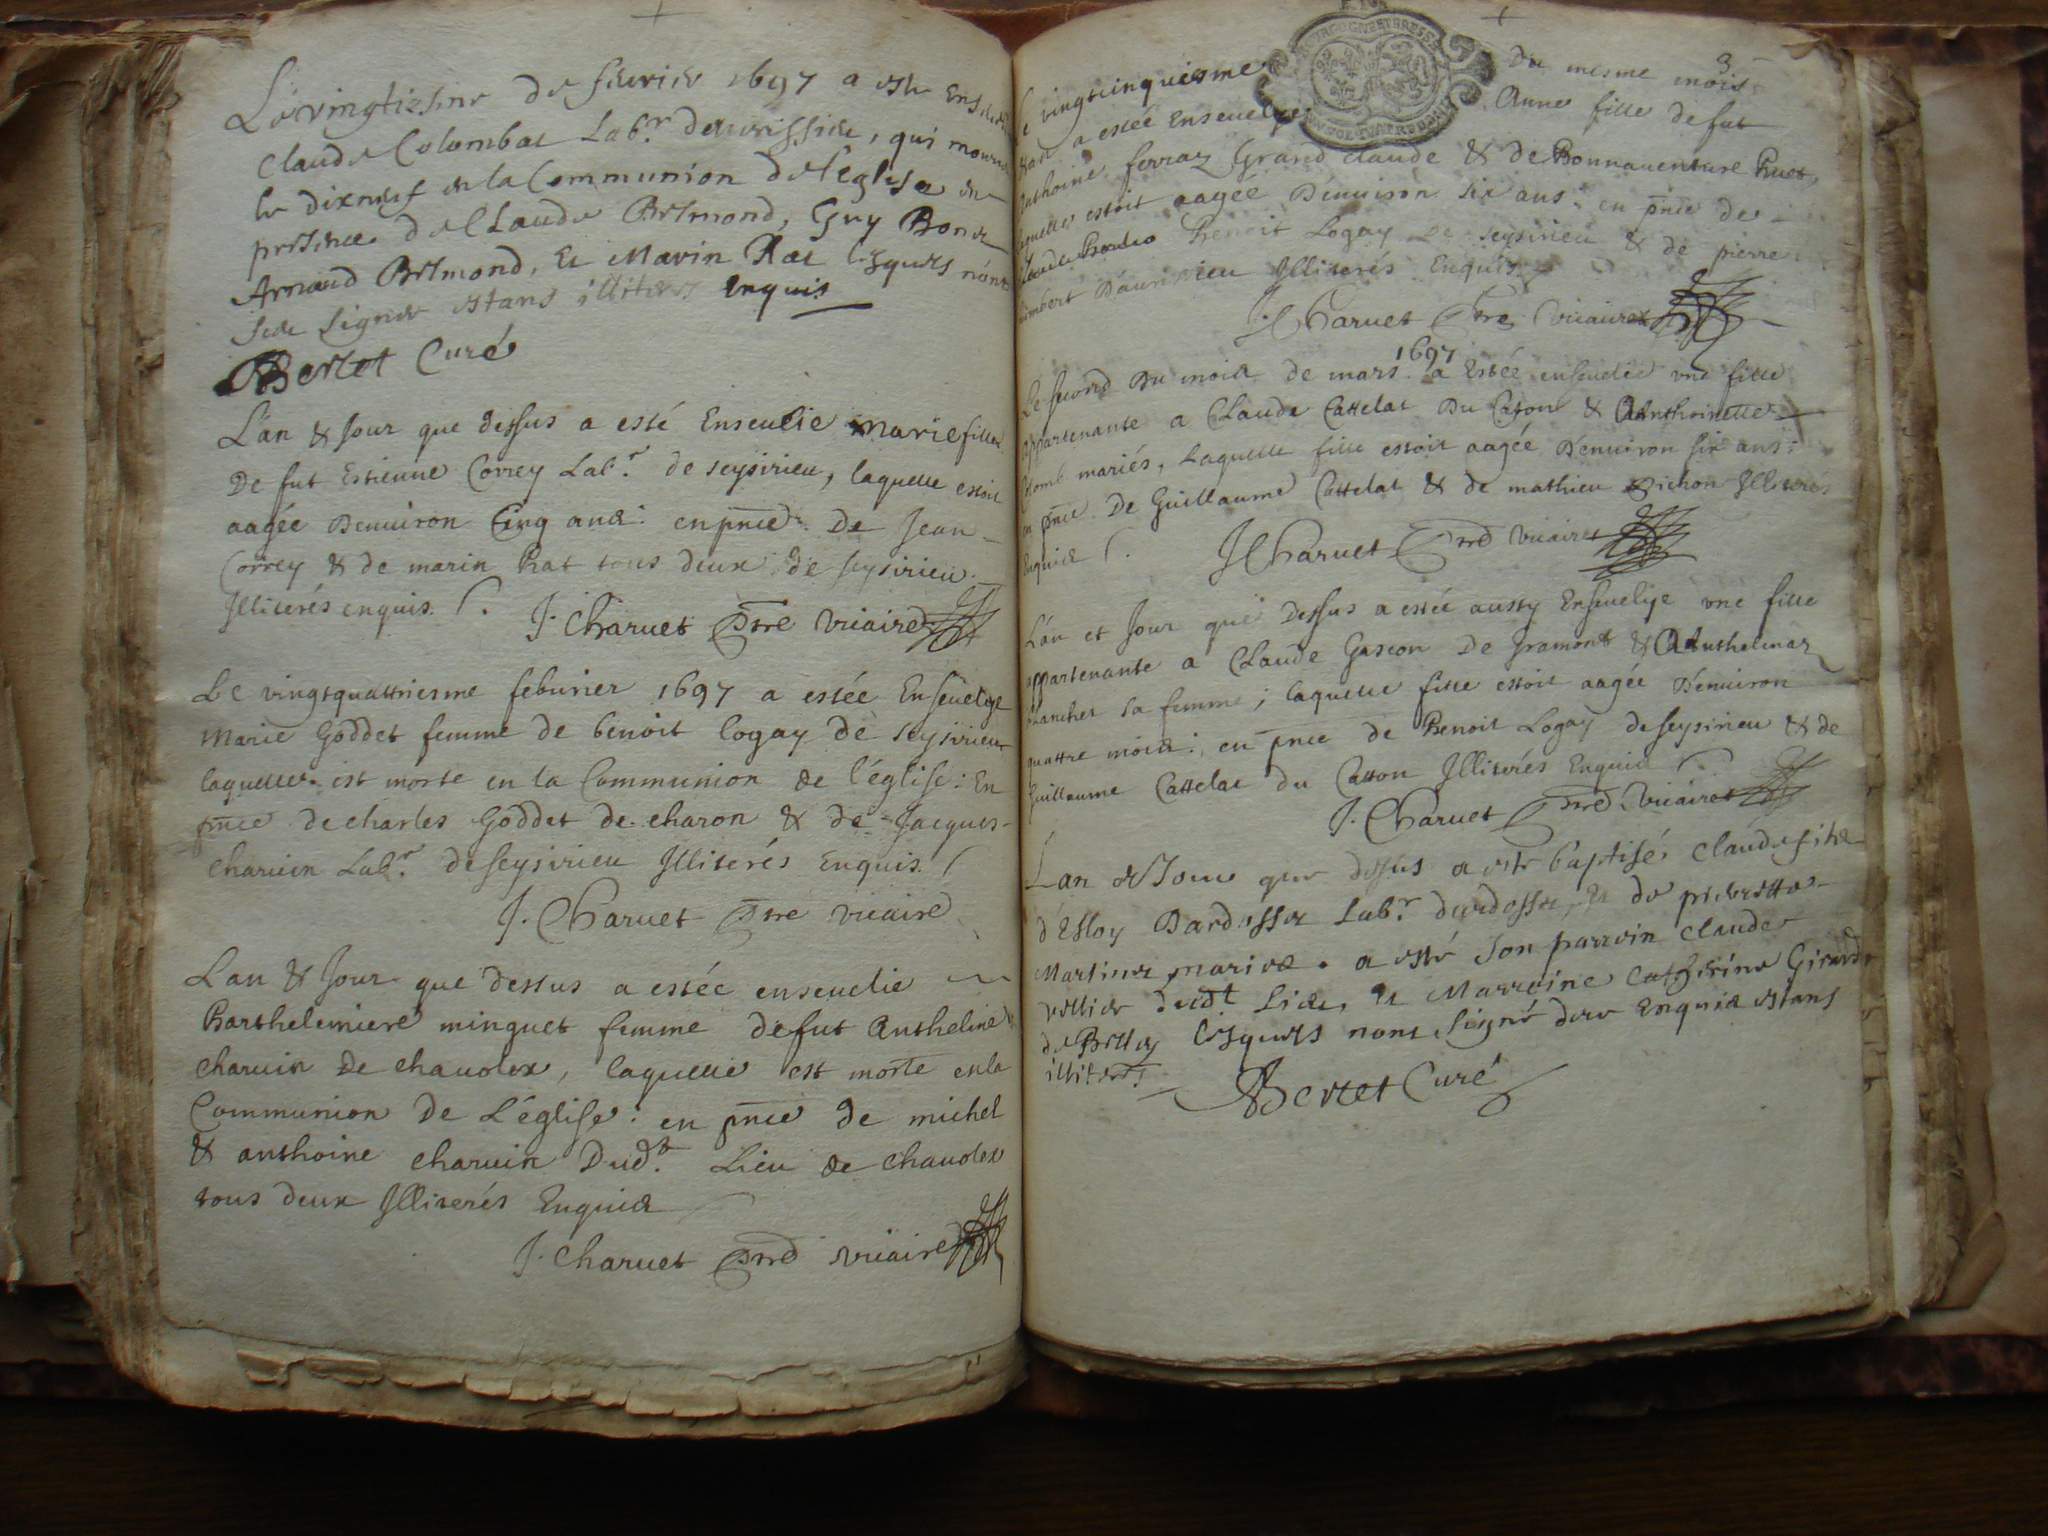 Le vingtiesme de fevrier 1697 a este
Claude Colombat Labr. daurissieu, qui
le dixneuf en la Communion de l'eglise en
presence de Claude Belmond, Guy Bon et
Arnaud Belmond, Et Marin Rat lesquels n'ont
sceu signer estans illiteres Enquis
Bertet Curé
L'an & Jour que dessus a esté Enseuelie marie fille
De fut Estienne Correy Labr. de seysirieu, laquelle estoit
aagée Denuiron Cinq ans: en pnce. De Jean
Correy & de marin Rat tous deux de seysirieu
Jlliterés enquis.
J. Charuet Ptre vicaire
Le vingtquattriesme febvrier 1697 a estée Enseuelye
Marie Goddet femme de benoit logay de seysirieu
laquelle est morte en la Communion de l'église: En
pnce de charles Goddet de charon & de Jacques
charuin Labr. de seysirieu Jlliterés Enquis.
J. Charuet Ptre vicaire
Lan & Jour que dessus a estée enseuelie
Barthelemiere minguet femme de fut Anthelme
charuin De chauolex, laquelle est morte en la
Communion De L'église: en pnce de michel
& anthoine charuin Dudt. Lieu de chauolex
tous deux Jlliterés Enquis
J. Charuet Ptre vicaire
3
vingtcinquiesme Du mesme mois
a estée Enseuelye Anne fille de fut
Anthoine ferraz Grand claude & de Bonnauenture Ruet,
laquelle estoit aagée Denuiron six ans: en pnce de
Benoit Logay de seysirieu & de pierre
humbert Daurissieu Jlliterés Enquis
J. Charuet Ptre vicaire
1697
Le second Du mois de mars a Estée enseuelie vne fille
appartenante a Claude Cattelat Du Catton & Anthoinette
Colomb mariés, Laquelle fille estoit aagée Denuiron six ans:
en pnce De Guillaume Cattelat & de mathieu pichon Jlliterés
Enquis
J Charuet Ptre vicaire
L'an et Jour que Dessus a estée aussy Enseuelye vne fille
appartenante a Claude Gascon De Gramont & Anthelmaz
blanchet sa femme; laquelle fille estoit aagée Denuiron
quattre mois: en pnce de Benoit Logay de seysirieu & de
Guillaume Cattelat du Catton Jlliterés Enquis
J. Charuet Ptre vicaire
Lan & Jour que dessus a este baptisé Claude filz
d'Elloy Dardossa Labr. et de
Martinez mariez. a esté son parrain claude
dudt Lieu, Et Marraine Catherine
de Belley lesquels n'ont signé Enquis estans
illiteres
Bertet Curé